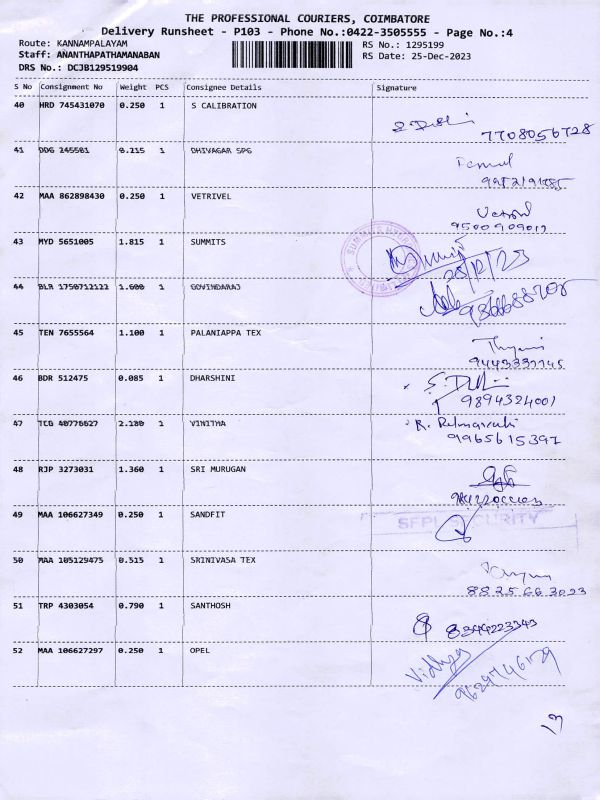 THE PROFESSIONAL COURIERS, COIMBATORE
Delivery Runsheet - P103 - Phone No.:0422-3505555 - Page No.:4
Route: KANNAMPALAYAM RS No.: 1295199
Staff: ANANTHAPATHAMANABAN RS Date: 25-Dec-2023
DRS No.: DCJB129519904
S No Consignment No Weight PCS Consignee Details Signature
40 HRD 745431070 0.250 1 S CALIBRATION
7708056728
41 DDG 245501 0.215 1 DHIVAGAR SPG
42 MAA 862898430 0.250 1 VETRIVEL
9500909012
43 MYD 5651005 1.815 1 SUMMITS
25/12/23
44 BLR 1750712122 1.600 1 GOVINDARAJ
45 TEN 7655564 1.100 1 PALANIAPPA TEX
46 BDR 512475 0.085 1 DHARSHINI
9894324001
47 TCG 40776627 2.180 1 VINITHA
9965615397
48 RJP 3273031 1.360 1 SRI MURUGAN
49 MAA 106627349 0.250 1 SANDFIT
SFPL SECURITY
50 MAA 105129475 0.515 1 SRINIVASA TEX
51 TRP 4303054 0.790 1 SANTHOSH
8344223343
52 MAA 106627297 0.250 1 OPEL
Vidhya